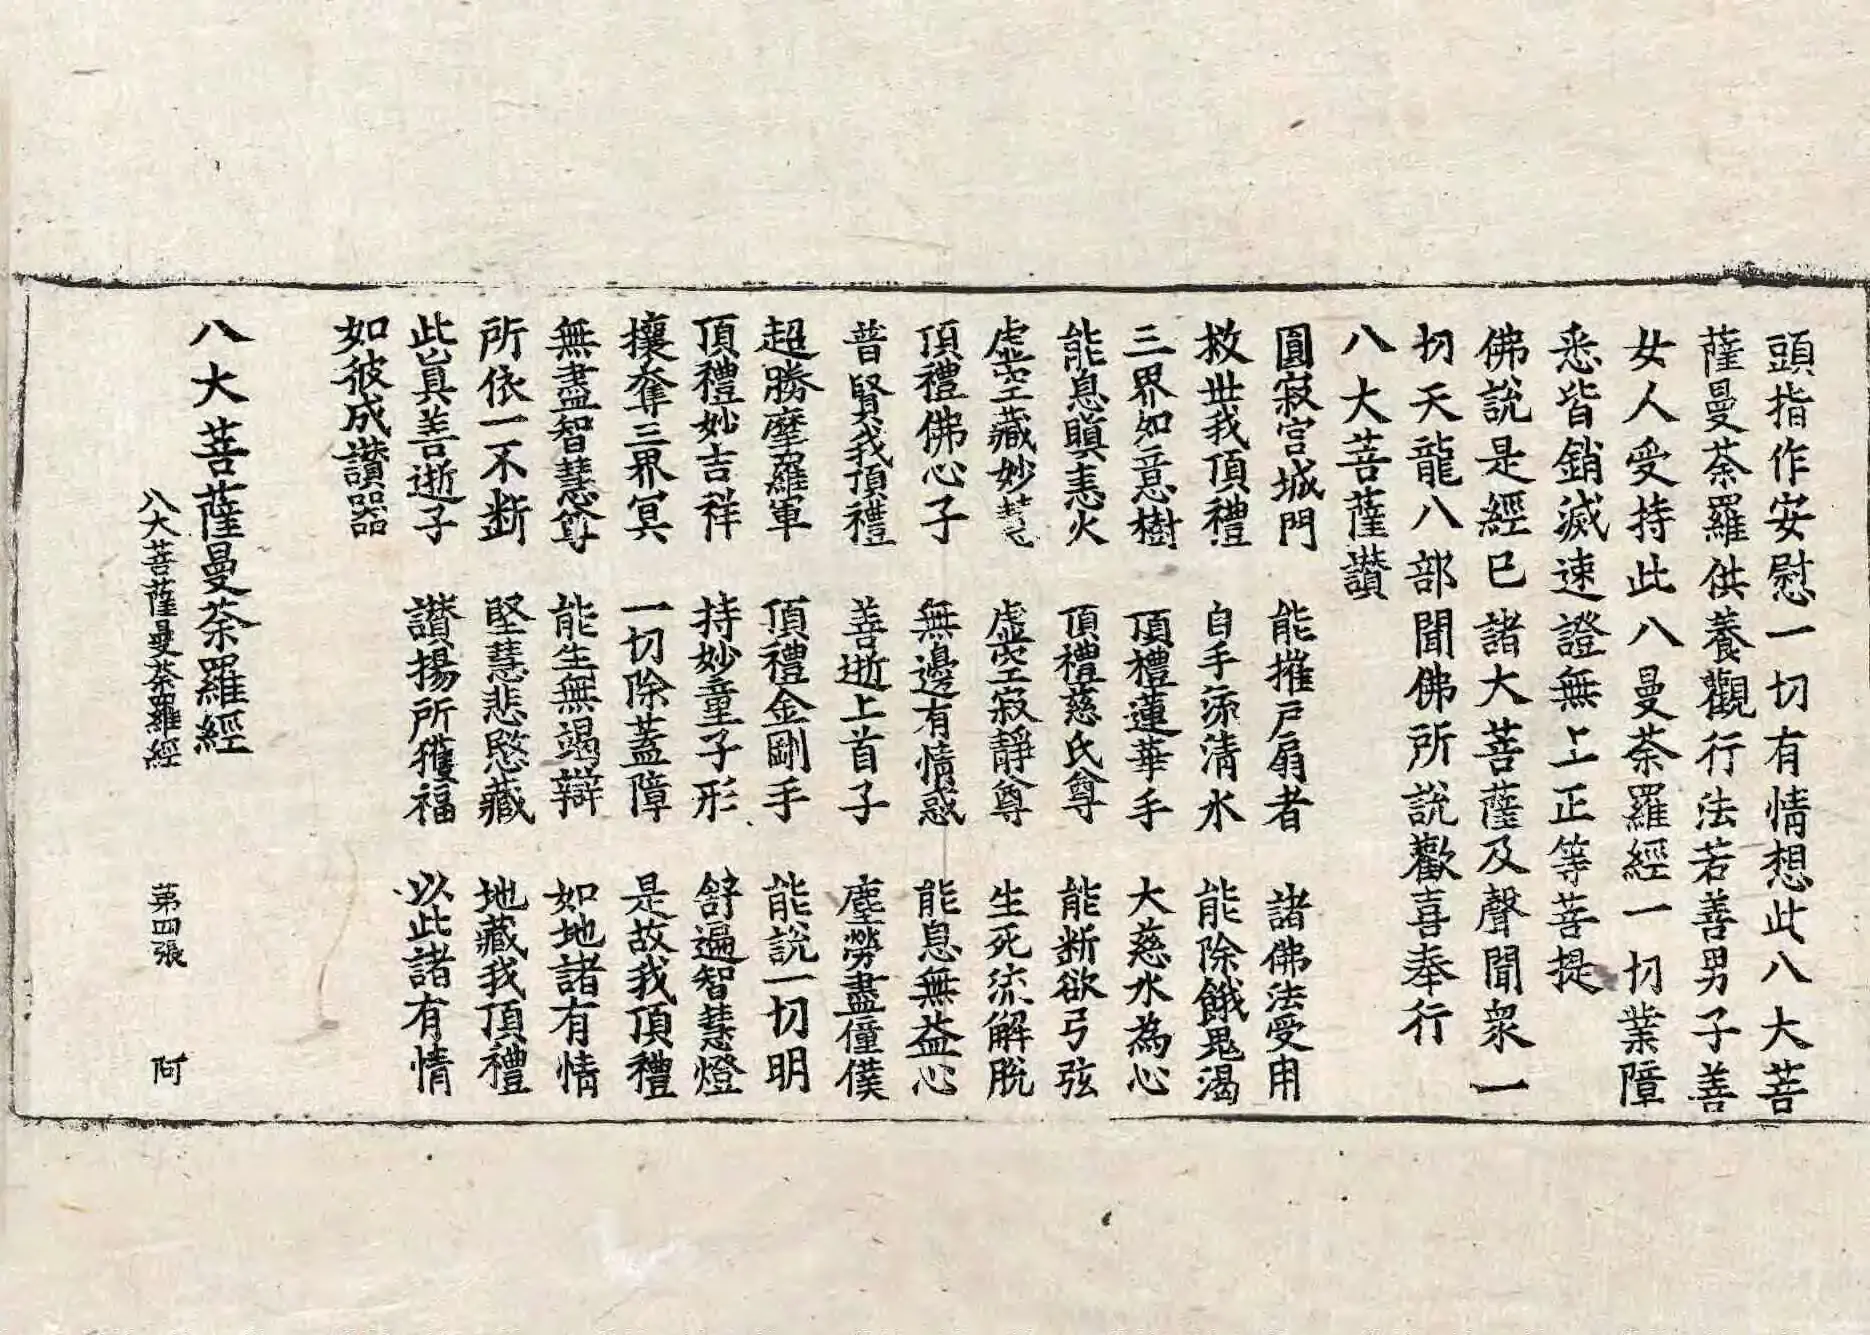 頭指作安慰一切有情想此八大菩
薩曼荼羅供養觀行法若善男子善
女人受持此八曼荼羅經一切業障
悉皆銷滅速證無上正等菩提
佛說是經已諸大菩薩及聲聞衆一
切天龍八部聞佛所說歡喜奉行
八大菩薩讚
圓寂宮城門 能摧戶扇者 諸佛法受用
救世我頂禮 自手流清水 能除餓鬼渴
三界如意樹 頂禮蓮華手 大慈水為心
能息瞋恚火 頂禮慈氏尊 能斷欲弓弦
虛空藏妙慧 虛空寂靜尊 生死流解脫
頂禮佛心子 無邊有情惑 能息無益心
普賢我頂禮 善逝上首子 塵勞盡僮僕
超勝摩羅軍 頂禮金剛手 能說一切明
頂禮妙吉祥 持妙童子形 舒遍智慧燈
攘奪三界冥 一切除蓋障 是故我頂禮
無盡智慧尊 能生無竭辯 如地諸有情
所依一不斷 堅慧悲愍藏 地藏我頂禮
此眞善逝子 讚揚所獲福 以此諸有情
如彼成讚器
八大菩薩曼荼羅經
八大菩薩曼荼羅經 第四張 阿